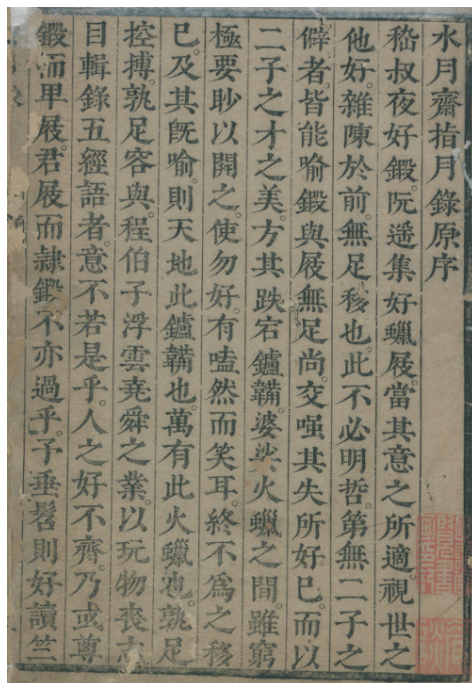 水月齋指月錄原序
嵇叔夜好鍛。阮遥集好蠟屐。當其意之所適。視世之
他好。雜陳於前。無足移也。此不必明哲。第無二子之
僻者。皆能喻鍛與屐無足尚。交嗤其失所好已。而以
二子之才之美。方其跌宕鑪韛。婆娑火蠟之間。雖窮
極要眇以開之。使勿好。有嗑然而笑耳。終不爲之移
已。及其旣喻。則天地此鑪韛也。萬有此火蠟也。孰足
控摶。孰足容與。程伯子浮雲堯舜之業。以玩物喪志
目輯錄五經語者。意不若是乎。人之好不齊。乃或尊
鍛而卑屐。君屐而隷鍛。不亦過乎。予垂髫則好讀竺